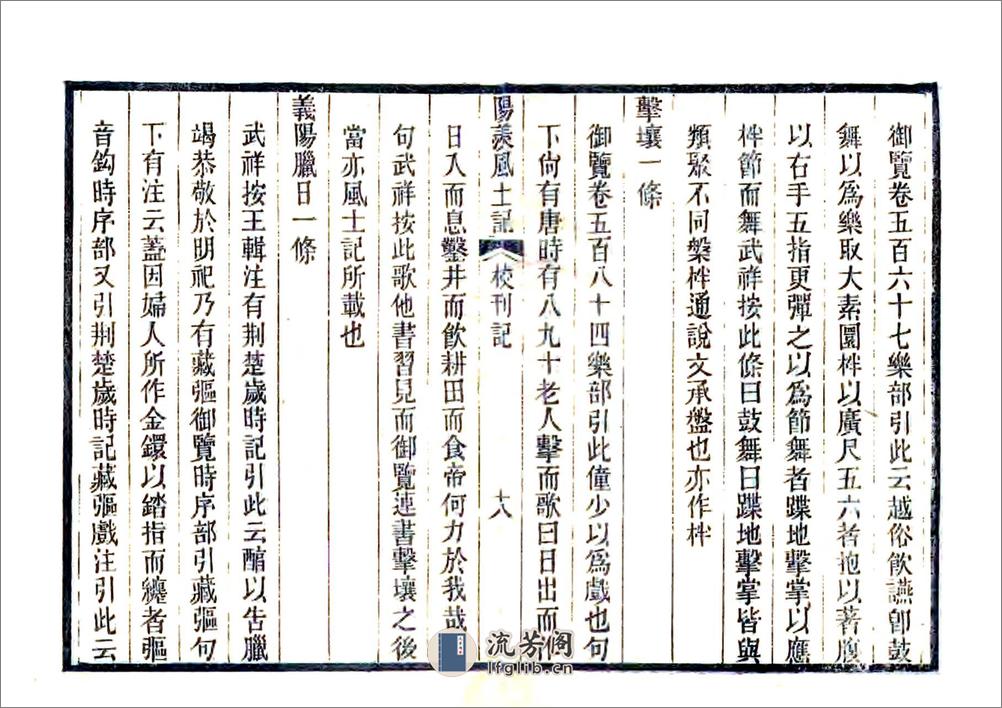 御覽卷五百六十七樂部引此云越俗飮讌卽鼓
舞以爲樂取大素圜柈以廣尺五六者抱以著腹
以右手五指更彈之以爲節舞者蹀地擊掌以應
柈節而舞武祥按此條曰鼓舞曰蹀地擊掌皆與
類聚不同槃柈通說文承盤也亦作柈
擊壤一條
御覽卷五百八十四樂部引此僮少以爲戲也句
下尙有唐時有八九十老人擊而歌曰日出而
陽羨風土記 校刊記 十八
日入而息鑿井而飮耕田而食帝何力於我哉
句武祥按此歌他書習見而御覽連書擊壤之後
當亦風土記所載也
義陽臘日一條
武祥按王輯注有荆楚歲時記引此云醡以告臘
竭恭敬於明祀乃有藏彄御覽時序部引藏彄句
下有注云蓋因婦人所作金鐶以錔指而纏者彄
音鉤時序部又引荆楚歲時記藏彄戲注引此云
流芳阁
lfglib.cn